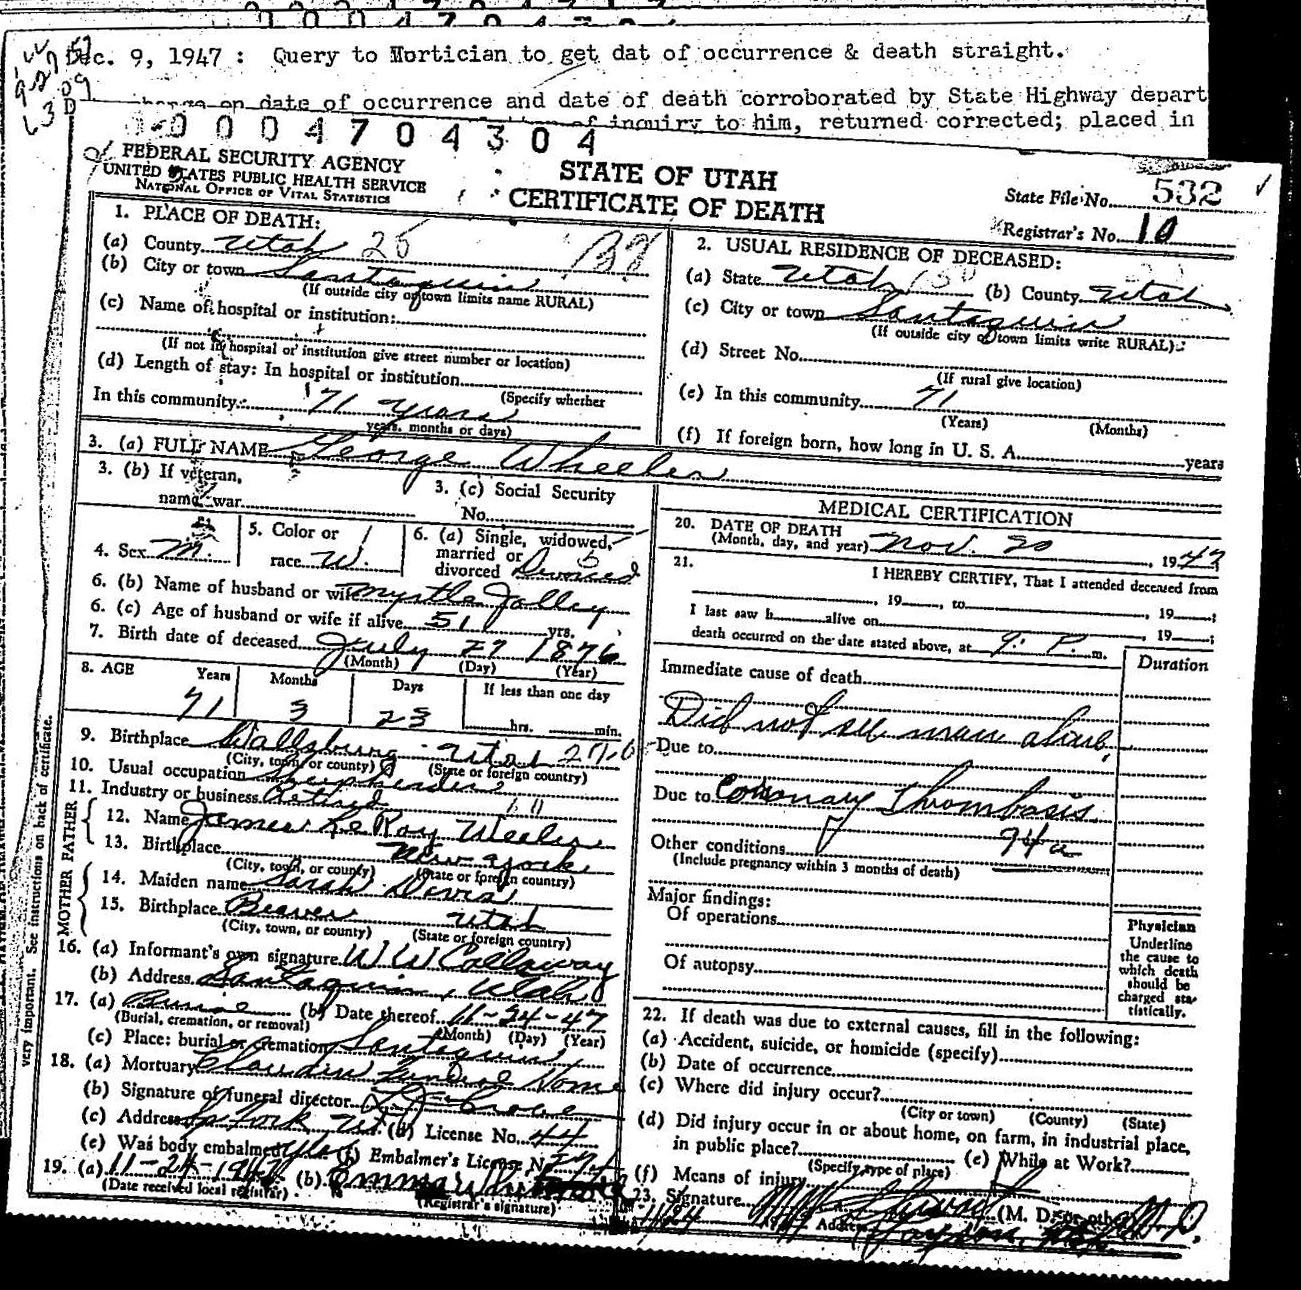 Dec. 9, 1947 : Query to Mortician to get dat of occurrence & death straight.
on date of occurrence and date of death corroborated by State Highway depart
of inquiry to him, returned corrected; placed in
0004704304
FEDERAL SECURITY AGENCY
UNITED STATES PUBLIC HEALTH SERVICE
NATIONAL OFFICE OF VITAL STATISTICS
STATE OF UTAH
CERTIFICATE OF DEATH
State File No. 532
Registrar's No. 10
1. PLACE OF DEATH:
(a) County Utah 25
(b) City or town Santaquin
(If outside city or town limits name RURAL)
(c) Name of hospital or institution:
(If not in hospital or institution give street number or location)
(d) Length of stay: In hospital or institution
(Specify whether
In this community: 71 years
years, months or days)
2. USUAL RESIDENCE OF DECEASED:
(a) State Utah (b) County Utah
(c) City or town Santaquin
(If outside city or town limits write RURAL)
(d) Street No.
(If rural give location)
(e) In this community 71
(Years) (Months)
(f) If foreign born, how long in U. S. A. years
3. (a) FULL NAME George Wheeler
3. (b) If veteran,
name war
3. (c) Social Security
No.
4. Sex M.
5. Color or
race W.
6. (a) Single, widowed,
married or
divorced Divorced
6. (b) Name of husband or wife Myrtle Jolley
6. (c) Age of husband or wife if alive 51 yrs.
7. Birth date of deceased July 27 1876
(Month) (Day) (Year)
8. AGE Years Months Days If less than one day
71 3 23 hrs. min.
9. Birthplace Wallsburg Utah
(City, town, or county) (State or foreign country)
10. Usual occupation Sheepherder
11. Industry or business Retired
FATHER
12. Name James LeRoy Weeler
13. Birthplace New York
(City, town, or county) (State or foreign country)
MOTHER
14. Maiden name Sarah Davis
15. Birthplace Beaver Utah
(City, town, or county) (State or foreign country)
16. (a) Informant's own signature W W Callaway
(b) Address Santaquin, Utah
17. (a) Burial (b) Date thereof 11-24-47
(Burial, cremation, or removal) (Month) (Day) (Year)
(c) Place: burial or cremation Santaquin
18. (a) Mortuary Claudin Funeral Home
(b) Signature of funeral director
(c) Address Sp. Fork Ut. (d) License No. 44
(e) Was body embalmed yes (f) Embalmer's License No.
19. (a) 11-24-1947 (b) Emma
(Date received local registrar) (Registrar's signature)
MEDICAL CERTIFICATION
20. DATE OF DEATH
(Month, day, and year) Nov. 20, 1947
21. I HEREBY CERTIFY, That I attended deceased from
, 19 , to , 19 ;
I last saw h alive on , 19 ;
death occurred on the date stated above, at 9. P. m.
Duration
Immediate cause of death
Did not see man alive,
Due to
Due to Coronary Thrombosis
94a
Other conditions
(Include pregnancy within 3 months of death)
Major findings:
Of operations
Of autopsy
Physician
Underline
the cause to
which death
should be
charged sta-
tistically.
22. If death was due to external causes, fill in the following:
(a) Accident, suicide, or homicide (specify)
(b) Date of occurrence
(c) Where did injury occur?
(City or town) (County) (State)
(d) Did injury occur in or about home, on farm, in industrial place,
in public place?
(Specify type of place) (e) While at Work?
(f) Means of injury
23. Signature (M. D. or other) M.D.
Address Payson,
very important. See instructions on back of certificate.